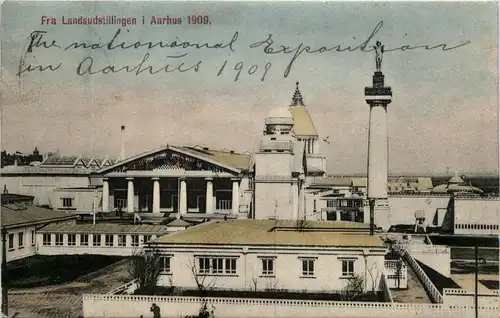 Fra Landsudstillingen i Aarhus 1909.
The national Exposition
in Aarhus 1909